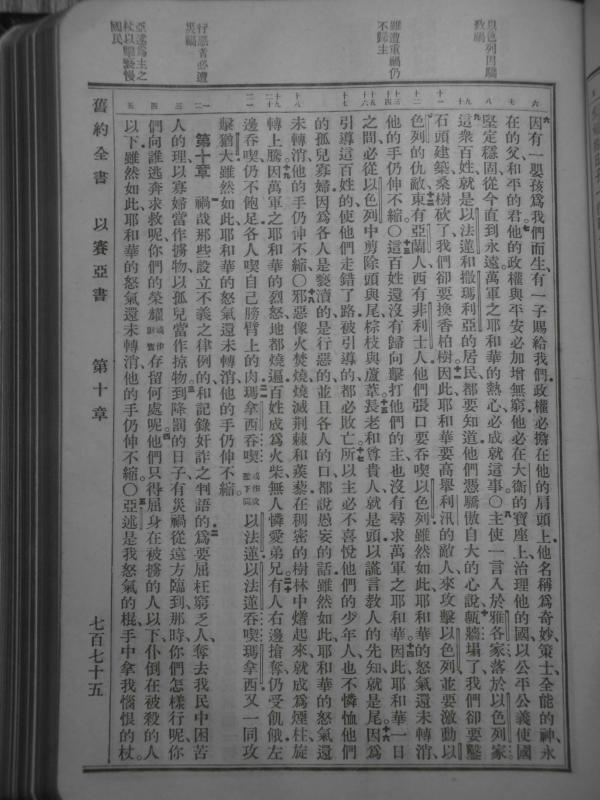 以色列因驕
致禍
雖遭重禍仍
不歸主
行惡者必遭
災禍
亞述爲主之
杖以擊褻慢
國民
六
因有一嬰孩爲我們而生、有一子賜給我們政權必擔在他的肩頭上他名稱爲奇妙策士、全能的神、永
七
在的父、和平的君。他的政權與平安必加增無窮他必在大衛的寶座上治理他的國以公平公義使國
八
堅定穩固從今直到永遠萬軍之耶和華的熱心必成就這事。〇主使一言入於雅各家落於以色列家
九
這衆百姓就是以法蓮和撒瑪利亞的居民都要知道他們憑驕傲自大的心說甎牆塌了我們卻要鑿
十一
石頭建築桑樹砍了我們卻要換香柏樹因此耶和華要高舉利汛的敵人來攻擊以色列並要激動以
十二
色列的仇敵東有亞蘭人西有非利士人他們張口要吞喫以色列雖然如此耶和華的怒氣還未轉消
十三 十四
他的手仍伸不縮。〇這百姓還沒有歸向擊打他們的主也沒有尋求萬軍之耶和華因此耶和華一日
十五 十六
之間必從以色列中剪除頭與尾棕枝與蘆葦長老和尊貴人就是頭以謊言教人的先知就是尾因爲
十七
引導這百姓的使他們走錯了路被引導的都必敗亡所以主必不喜悅他們的少年人也不憐恤他們
的孤兒寡婦因爲各人是褻瀆的是行惡的並且各人的口都說愚妄的話雖然如此耶和華的怒氣還
十八
未轉消他的手仍伸不縮。〇邪惡像火焚燒燒滅荊棘和蒺藜在稠密的樹林中熷起來就成爲煙柱旋
十九 二十
轉上騰因萬軍之耶和華的烈怒地都燒遍百姓成爲火柴無人憐愛弟兄有人右邊搶奪仍受飢餓左
二一
邊吞喫仍不飽足各人喫自己膀臂上的肉瑪拿西吞喫或作攻擊下同以法蓮以法蓮吞喫瑪拿西又一同攻
擊猶大雖然如此耶和華的怒氣還未轉消他的手仍伸不縮
一 二
第十章 禍哉那些設立不義之律例的和記錄奸詐之判語的爲要屈枉窮乏人奪去我民中困苦
三
人的理以寡婦當作擄物以孤兒當作掠物到降罰的日子有災禍從遠方臨到那時你們怎樣行呢你
四
們向誰逃奔求救呢你們的榮耀或作財寶存留何處呢他們只得屈身在被擄的人以下仆倒在被殺的人
五
以下雖然如此耶和華的怒氣還未轉消他的手仍伸不縮。〇亞述是我怒氣的棍手中拿我惱恨的杖。
舊約全書 以賽亞書 第十章 七百七十五